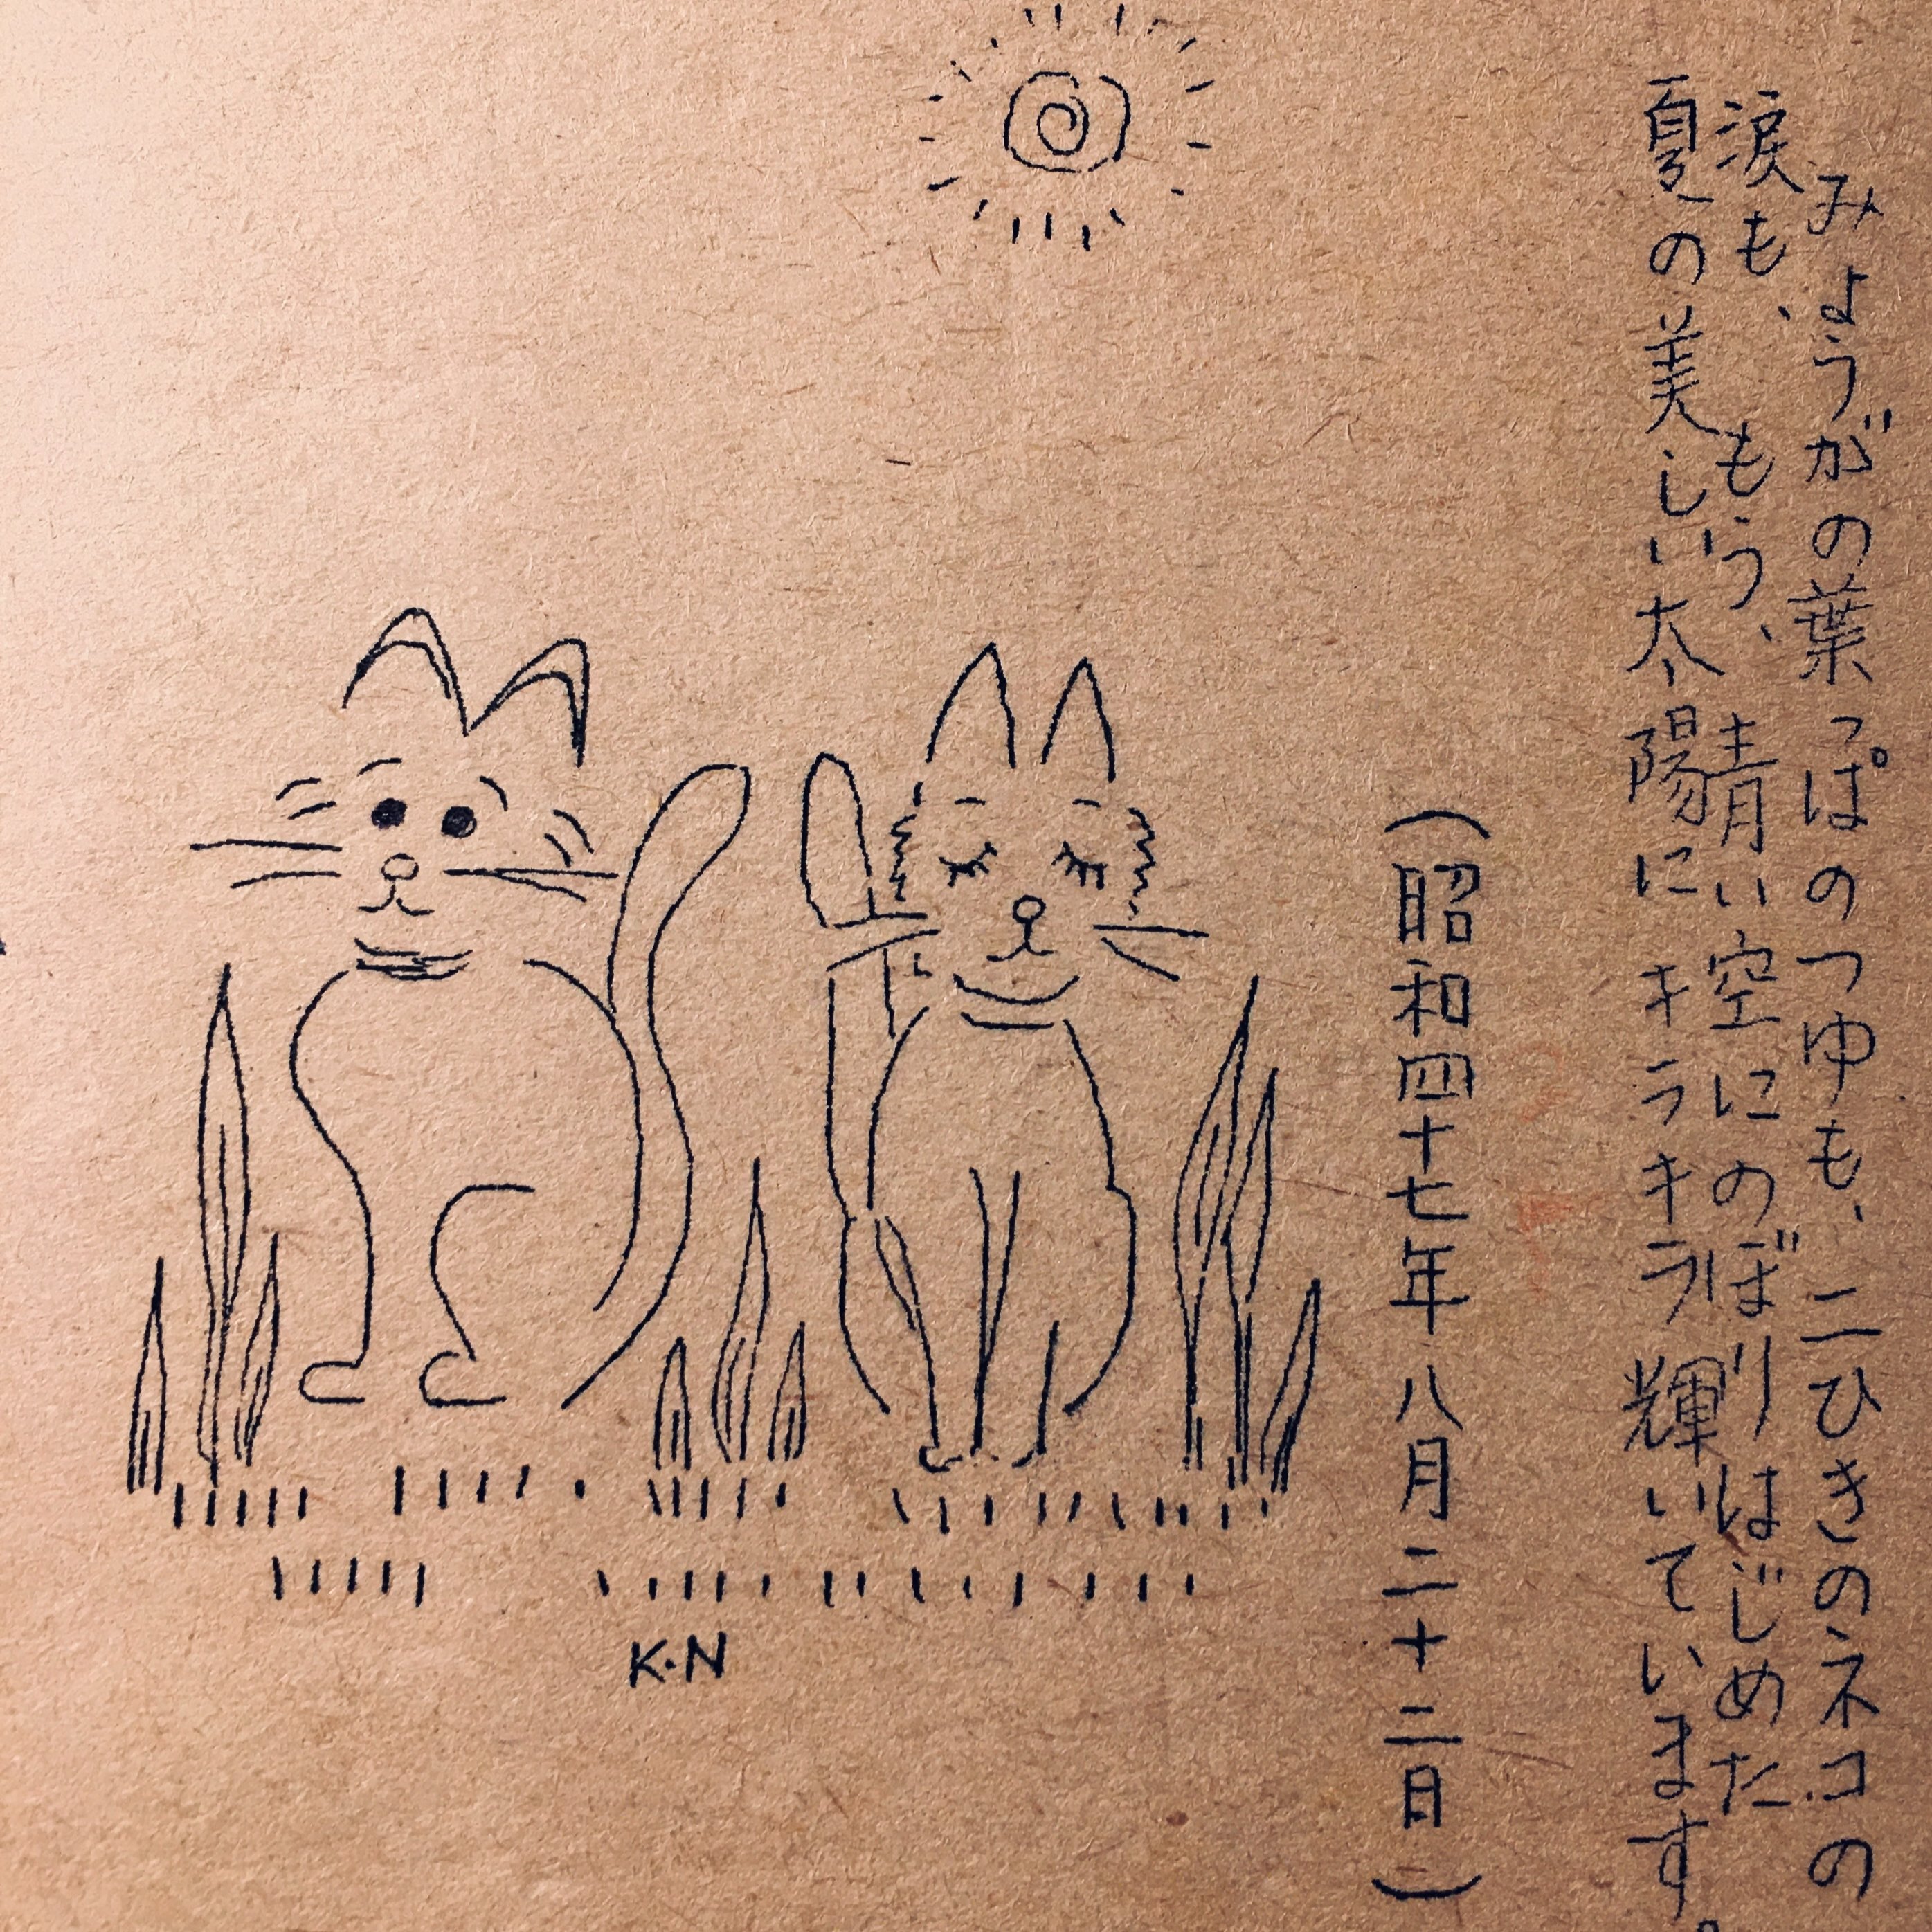 みようがの葉っぱのつゆも、二ひきのネコの
涙も、もう、青い空にのぼりはじめた
夏の美しい太陽にキラキラ輝いています。
(昭和四十七年八月二十二日)
K・N